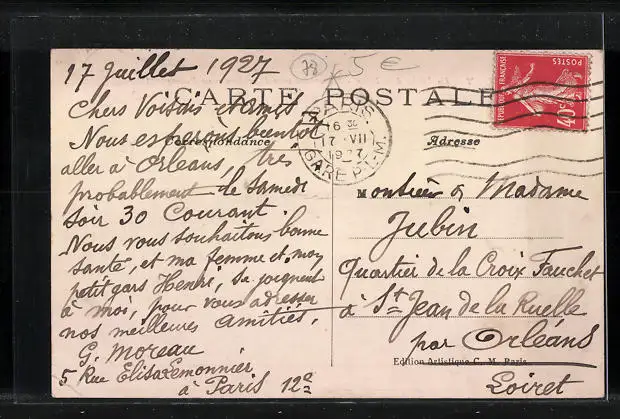 17 Juillet 1927
78
5 €
CARTE POSTALE
Correspondance
Adresse
Chers Voisins & Amis
Nous espérons bientôt
aller à Orléans, très
probablement le Samedi
soir 30 Courant.
Nous vous souhaitons bonne
santé, et ma femme et mon
petit gars Henri, se joignent
à moi, pour vous adresser
nos meilleures amitiés.
G. Moreau
5 Rue Elisa Lemonnier
à Paris 12e
REPUBLIQUE FRANÇAISE
POSTES
PARIS
16 30
17 - VII
1927
GARE P.L.M.
Monsieur & Madame
Jubin
Quartier de la Croix Fauchet
à St Jean de la Ruelle
par Orléans
Loiret
Edition Artistique C. M. Paris